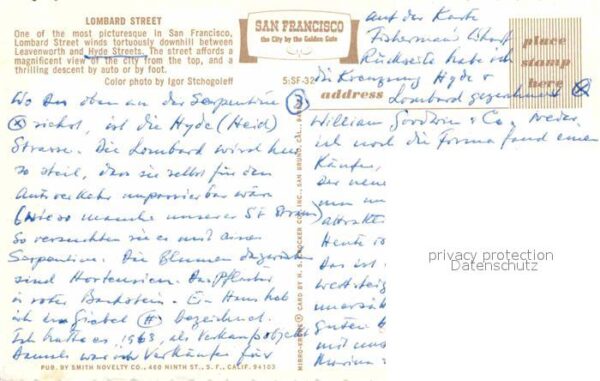 LOMBARD STREET
One of the most picturesque in San Francisco,
Lombard Street winds tortuously downhill between
Leavenworth and Hyde Streets. The street affords a
magnificent view of the city from the top, and a
thrilling descent by auto or by foot.
Color photo by Igor Stchogoleff
SAN FRANCISCO
the City by the Golden Gate
5:SF-32
address
place
stamp
here
Wo du oben an der Serpentine
(x) siehst, ist die Hyde (Heid)
Strasse. Die Lombard wird hier
so steil, dass sie selbst für den
Autoverkehr unpassierbar wäre
(Wie so manche unserer SF Strassen)
So versuchten sie es mit einer
Serpentine. Die Blumen dazwischen
sind Hortensien. Das Pflaster
in roter Backstein. Ein Haus hab
ich im Giebel (H) bezeichnet.
Ich hatte es 1963, als Verkaufsobjekt
Damals war ich Verkäufer für
(3)
auf der Karte
Fisherman Wharf
Rückseite habe ich
die Kreuzung Hyde &
Lombard gezeichnet (x)
William Goodwin & Co.
ich noch die Firma fand einen
Käufer,
Der neue
man
attrakt
Heute
Das ist
wertsteig
unersä
guten
mit
MIRRO-KROME® CARD BY H. S. CROCKER CO., INC., SAN BRUNO, CAL.
privacy protection
Datenschutz
PUB. BY SMITH NOVELTY CO., 460 NINTH ST., S. F., CALIF. 94103